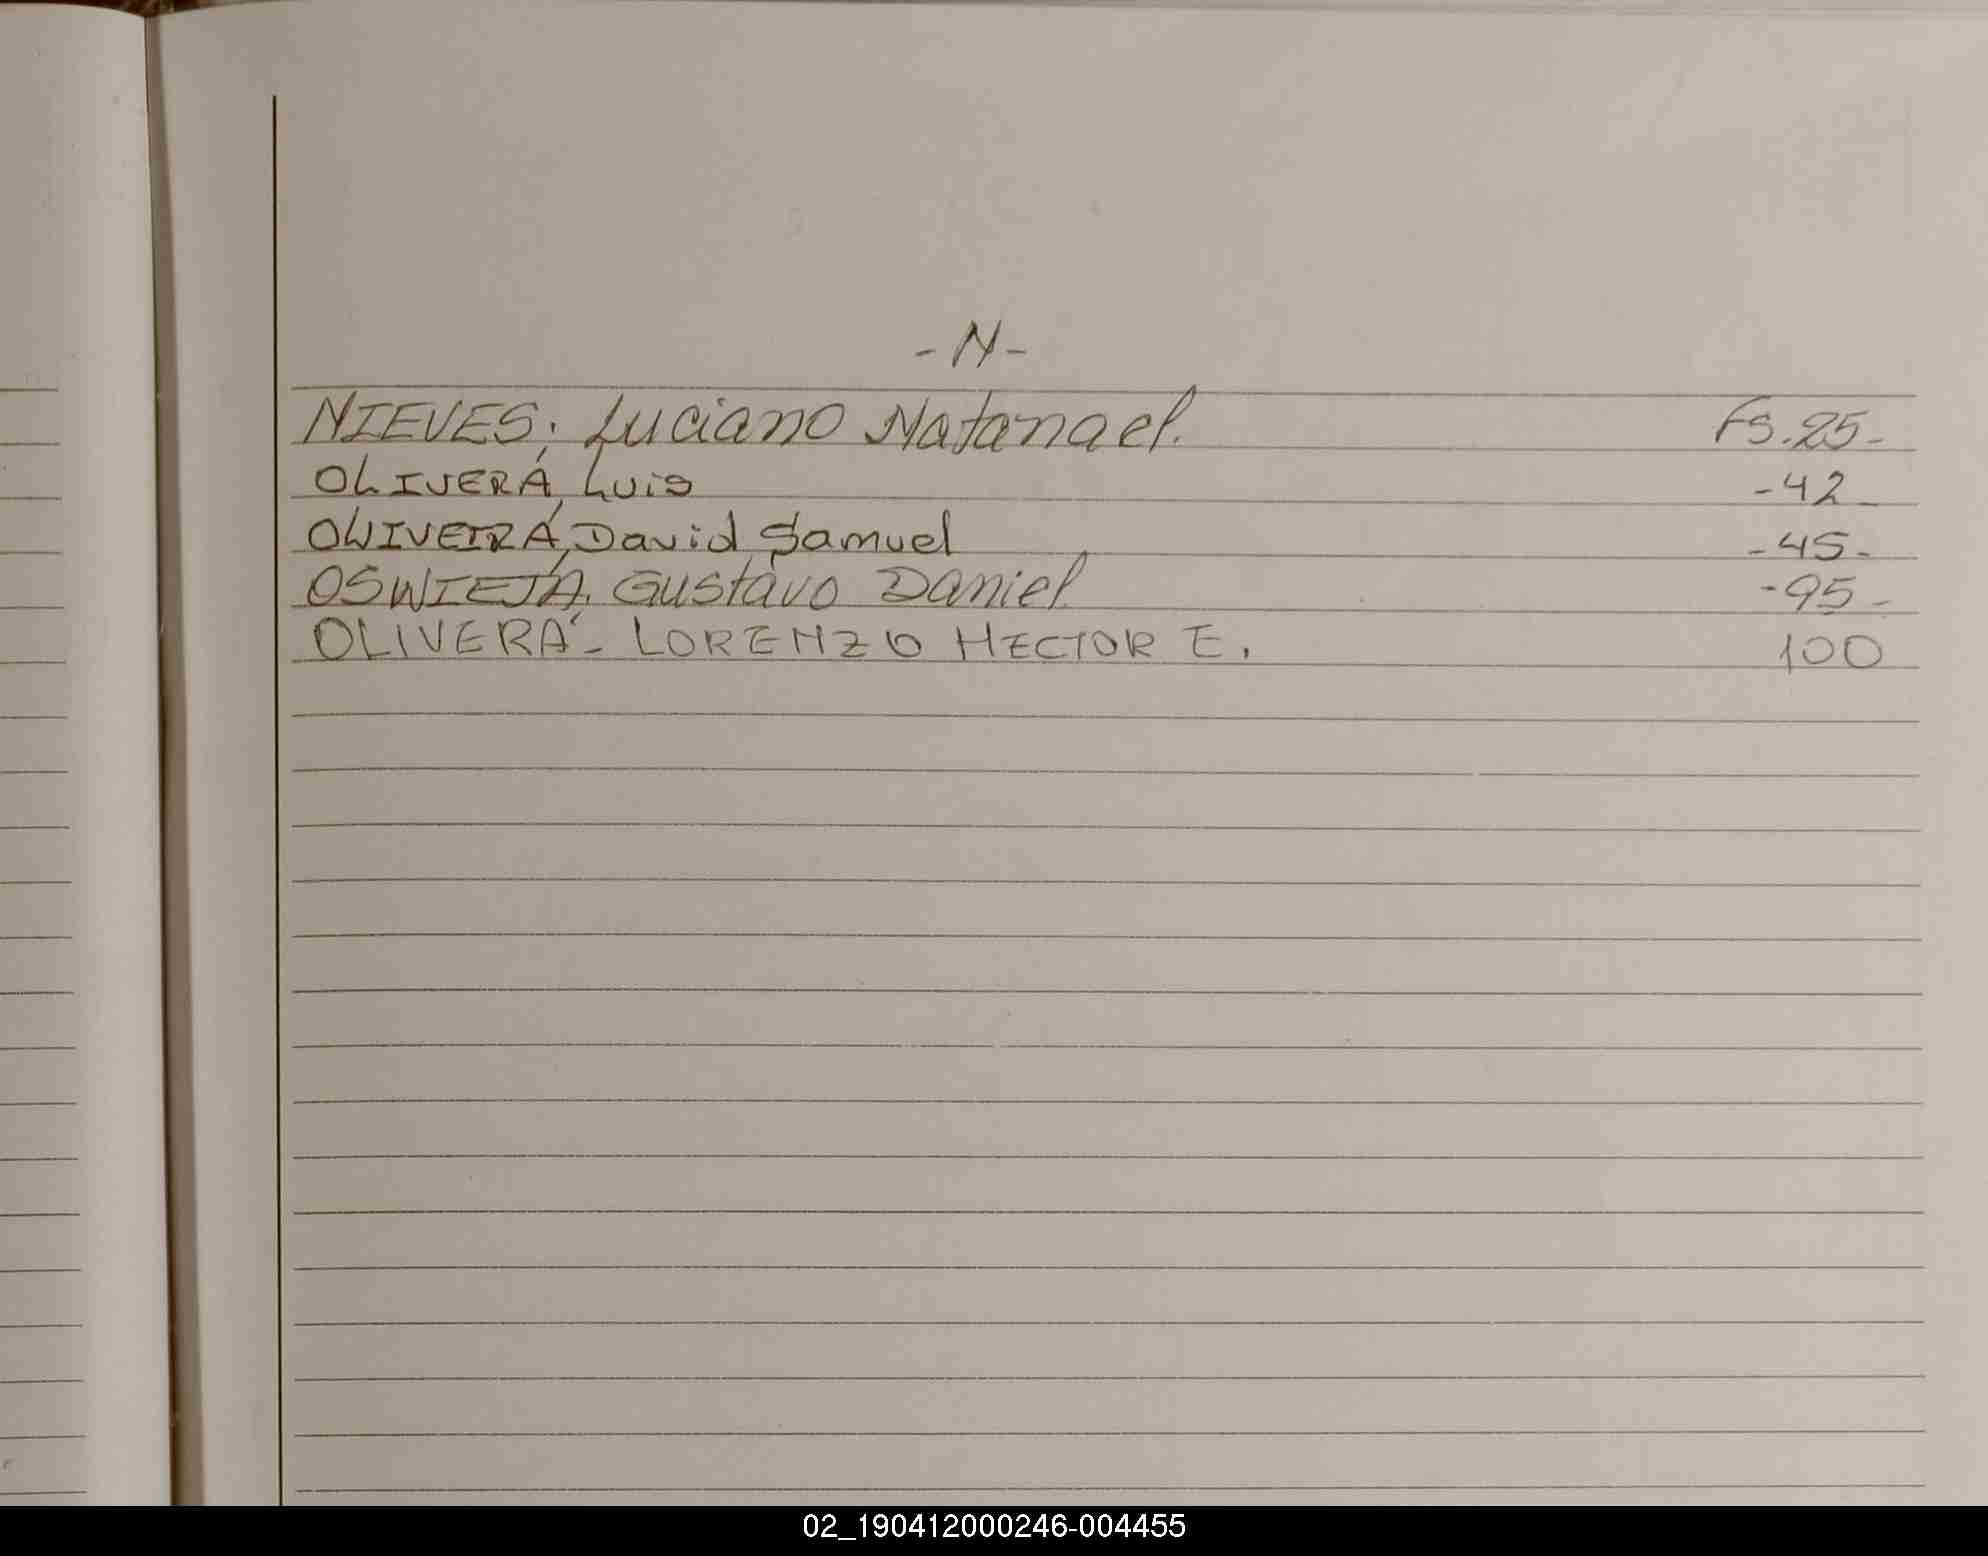 - N -
NIEVES, Luciano Natanael. Fs. 25-
OLIVERA, Luis -42-
OLIVEIRA, David Samuel -45-
OSWIEJA, Gustavo Daniel -95-
OLIVERA - LORENZO HECTOR E. 100
02_190412000246-004455